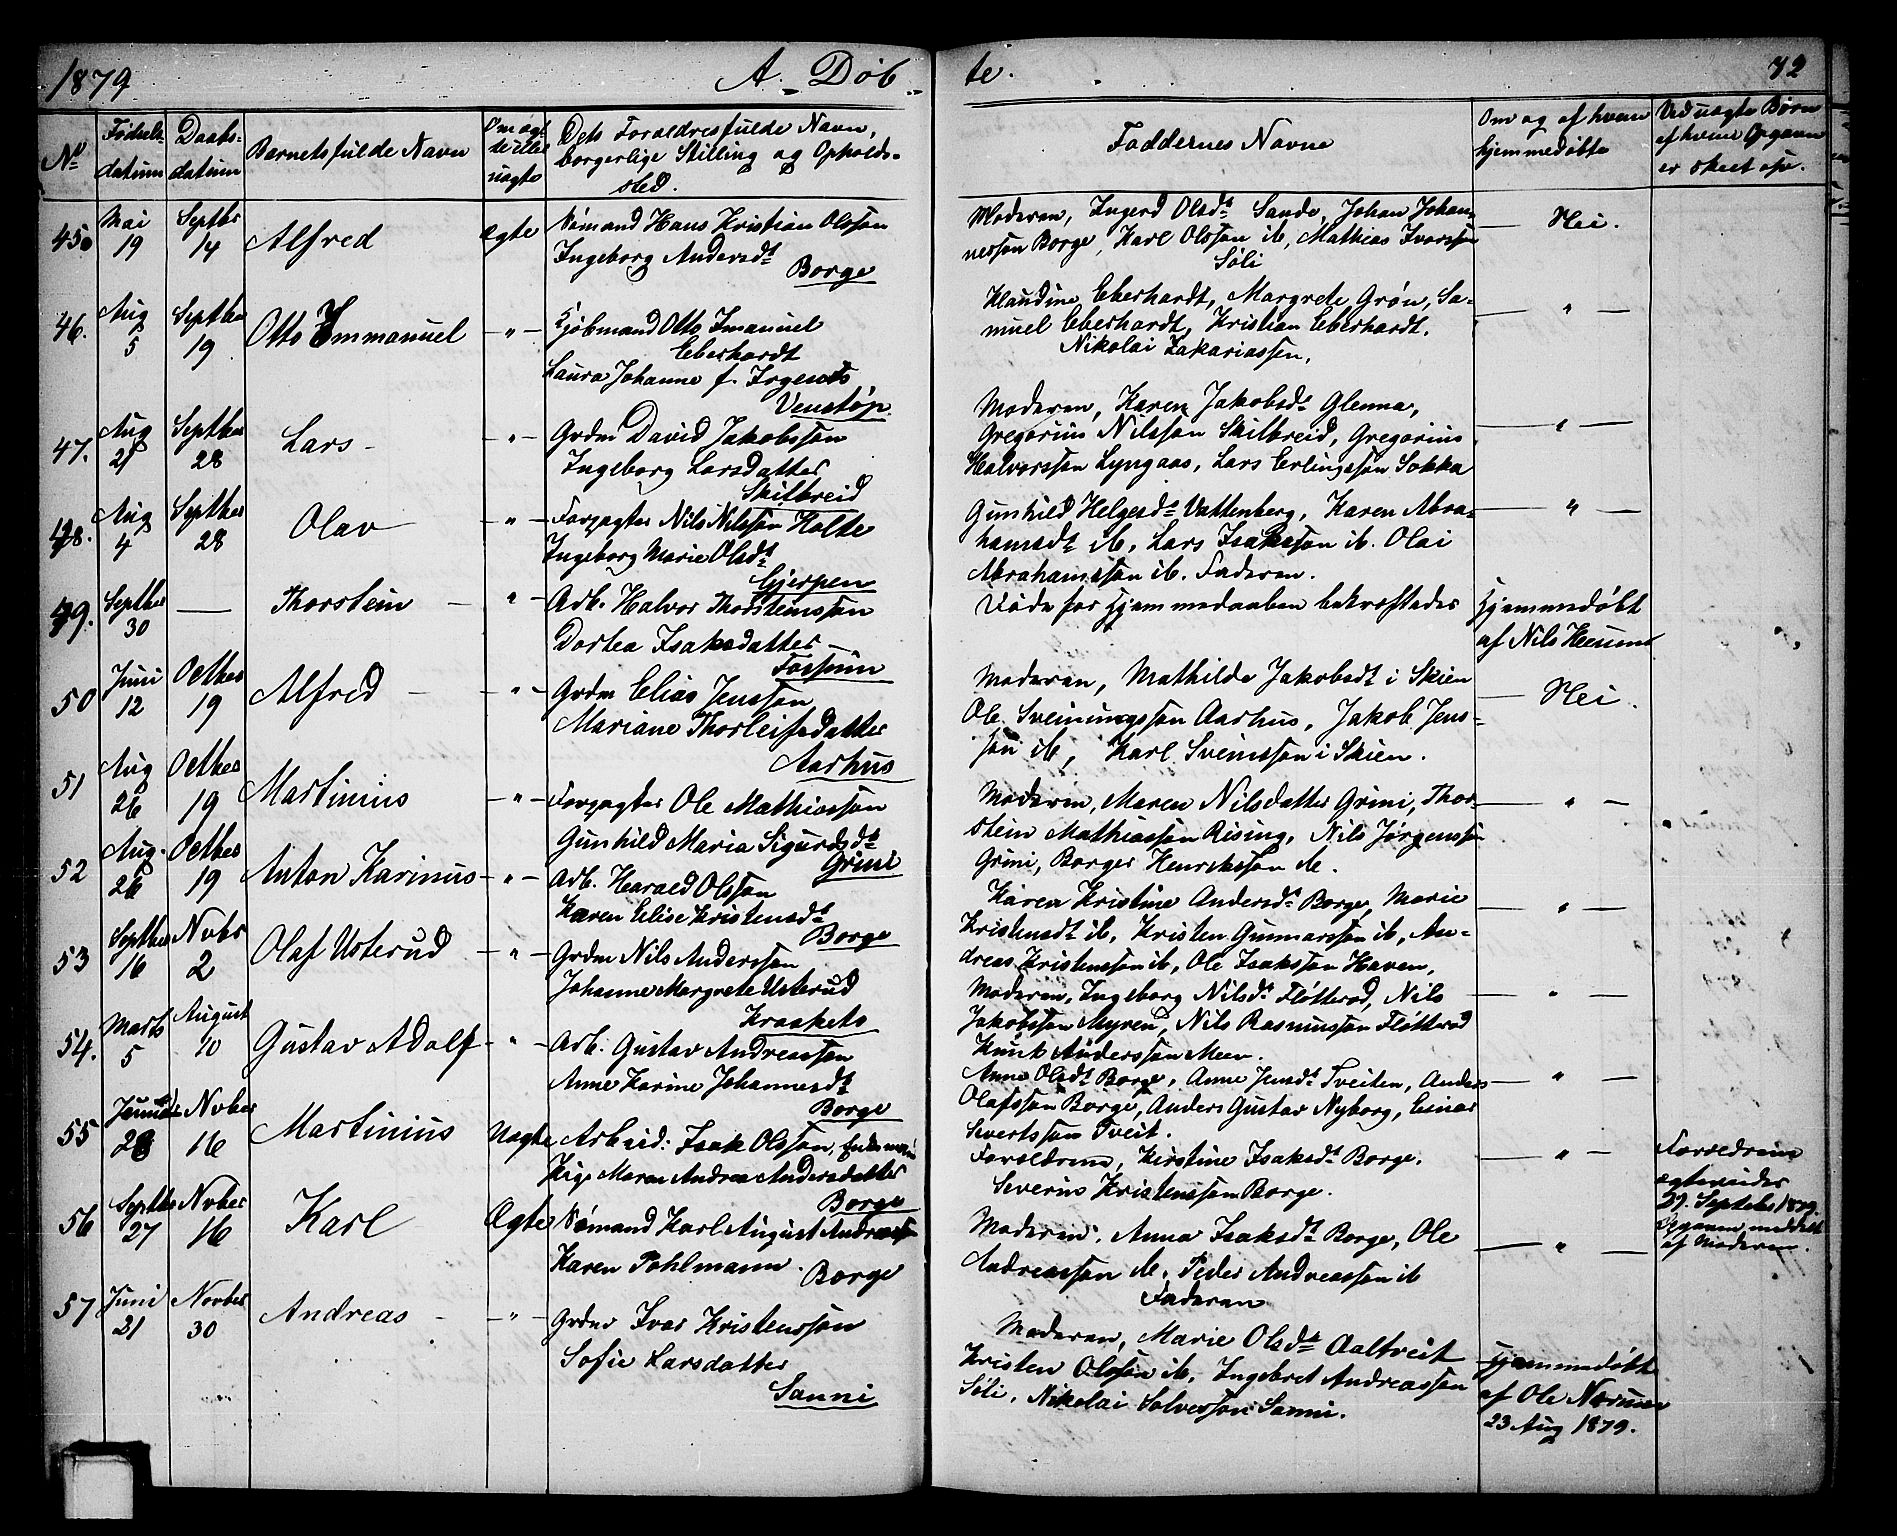 1879 A. Døb-
te. 72
No Fødsels- datum Daabs- datum Barnets fulde Navn Om ægte eller uægte Dets Forældres fulde Navn, borgerlige Stilling og Opholds- sted.
Faddernes Navne Om og af hvem hjemmedøbte Ved uægte Børn af hvem Opgaven er skeet
45. Mai 19 Septbr 14 Alfred ægte Sømand Hans Kristian Olsson
Ingeborg Andersdt
Borge
Moderen, Ingerd Olsdt Sande, Johan Johan-
nesson Borge, Karl Olsson ib, Mathias Ivarsson
Søli
Nei.
46. Aug 5 Septbr 19 Otto Emmanuel -"- Kjøbmand Otto Imanuel
Eberhardt
Laura Johanne f.
Venstøp
Klaudine Eberhardt, Margrete Grøn, Sa-
muel Eberhardt, Kristian Eberhardt.
Nikolai Zakariassen.
"
47. Aug 21 Septbr 28 Lars -"- Grdm David Jakobsson
Ingeborg Larsdatter
Skilbreid
Moderen, Karen Jakobsdt Glenna,
Gregorius Nilsson Skilbreid, Gregorius
Halvorsson Lyngaas, Lars Erlingsson Sokka
"
48. Aug 4 Septbr 28 Olav -"- Forpagter Nils Nilsson Holte
Ingeborg Marie Olsdt
Gjerpen
Gunhild Helgesdt Vattenberg, Karen Abra-
hamsdt ib, Lars Isaksson ib. Olai
Abrahamsson ib. Faderen.
"
49. Septbr 30 — Thorstein " Arb. Halvor Thorsteinsson
Dortea Isaksdatter
Fossum
Døde før Hjemmedaaben bekræftedes
Hjemmedøbt
af Nils
50 Juni 12 Octbr 19 Alfred -"- Grdm Elias Jensson
Mariane Thorleifsdatter
Aarhus
Moderen, Mathilde Jakobsdt i Skien
Ole Sveiningsson Aarhus, Jakob Jens-
son ib, Karl Sveinsson i Skien.
Nei.
51 Aug 26 Octber 19 Martinius -"- Forpagter Ole Mathiasson
Gunhild Maria Sigurdsdt
Grini
Moderen, Maren Nilsdatter Grini, Thor-
stein Mathiasson Rising, Nils Jørgensson
Grini, Borger Henriksson ib.
"
52 Aug. 26 Octber 19 Anton Karinus -"- Arb. Harald Olsson
Karen Elise Kristensdt
Borge
Karen Kristine Andersdt Borge, Marie
Kristensdt ib, Kristen Gunnarsson ib, An-
dreas Kristensson ib, Ole Isaksson Haven,
"
53 Septber 16 Novbr 2 Olaf Usterud -"- Grdm Nils Andersson
Johanne Margrete Usterud
Moderen, Ingeborg Nilsdt Fløtterød, Nils
Jakobsson Myren, Nils Rasmusson Fløtterød
Knut Andersson Meen.
"
54. Marts 5 August 10 Gustav Adolf -"- Arb. Gustav Andreasson
Anne Karine Johannesdt
Borge
Anne Olsdt Borge, Anne Jensdt Tveiten, Anders
Olafsson Borge, Anders Gustav Nyborg, Einar
Sivertsson Tveit.
"
55 Novber 16 Martinius Uægte Arbeid: Isak Olsson,
Pige Maren Andrea Andersdatter
Borge
Forældrene, Kirstine Isaksdt Borge.
Severin Kristensson Borge.
"
Forældrene
ægtevides
27. Septebr 1879.
Opgaven meddelt
af Moderen.
56 Septber 27 Novber 16 Karl Ægte Sømand Karl August Andreasson
Karen Pohlmann.
Borge
Moderen, Anna Isaksdt Borge, Ole
Andreasson ib, Peder Andreasson ib
Faderen
"
57 Juni 21 Novber 30 Andreas -"- Grdmr Ivar Kristensson
Sofie Larsdatter
Sanni
Moderen, Marie Olsdt Aaltveit
Kristen Olsson ib, Ingebret Andreasson
Søli, Nikolai Solvesson Sanni.
Hjemmedøbt
af Ole
23 Aug 1879.